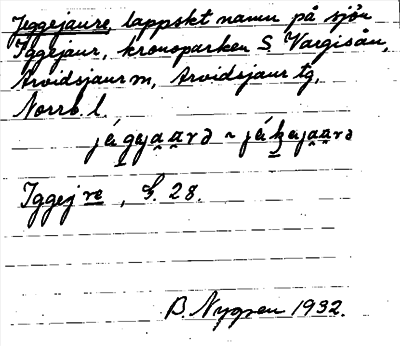 Jeggejaure, lappskt namn på sjön
Iggejaur, kronoparken S. Vargisån,
Arvidsjaur sn, Arvidsjaur tg,
Norrb. l.
Iggejre, S. 28.
B. Nygren 1932.